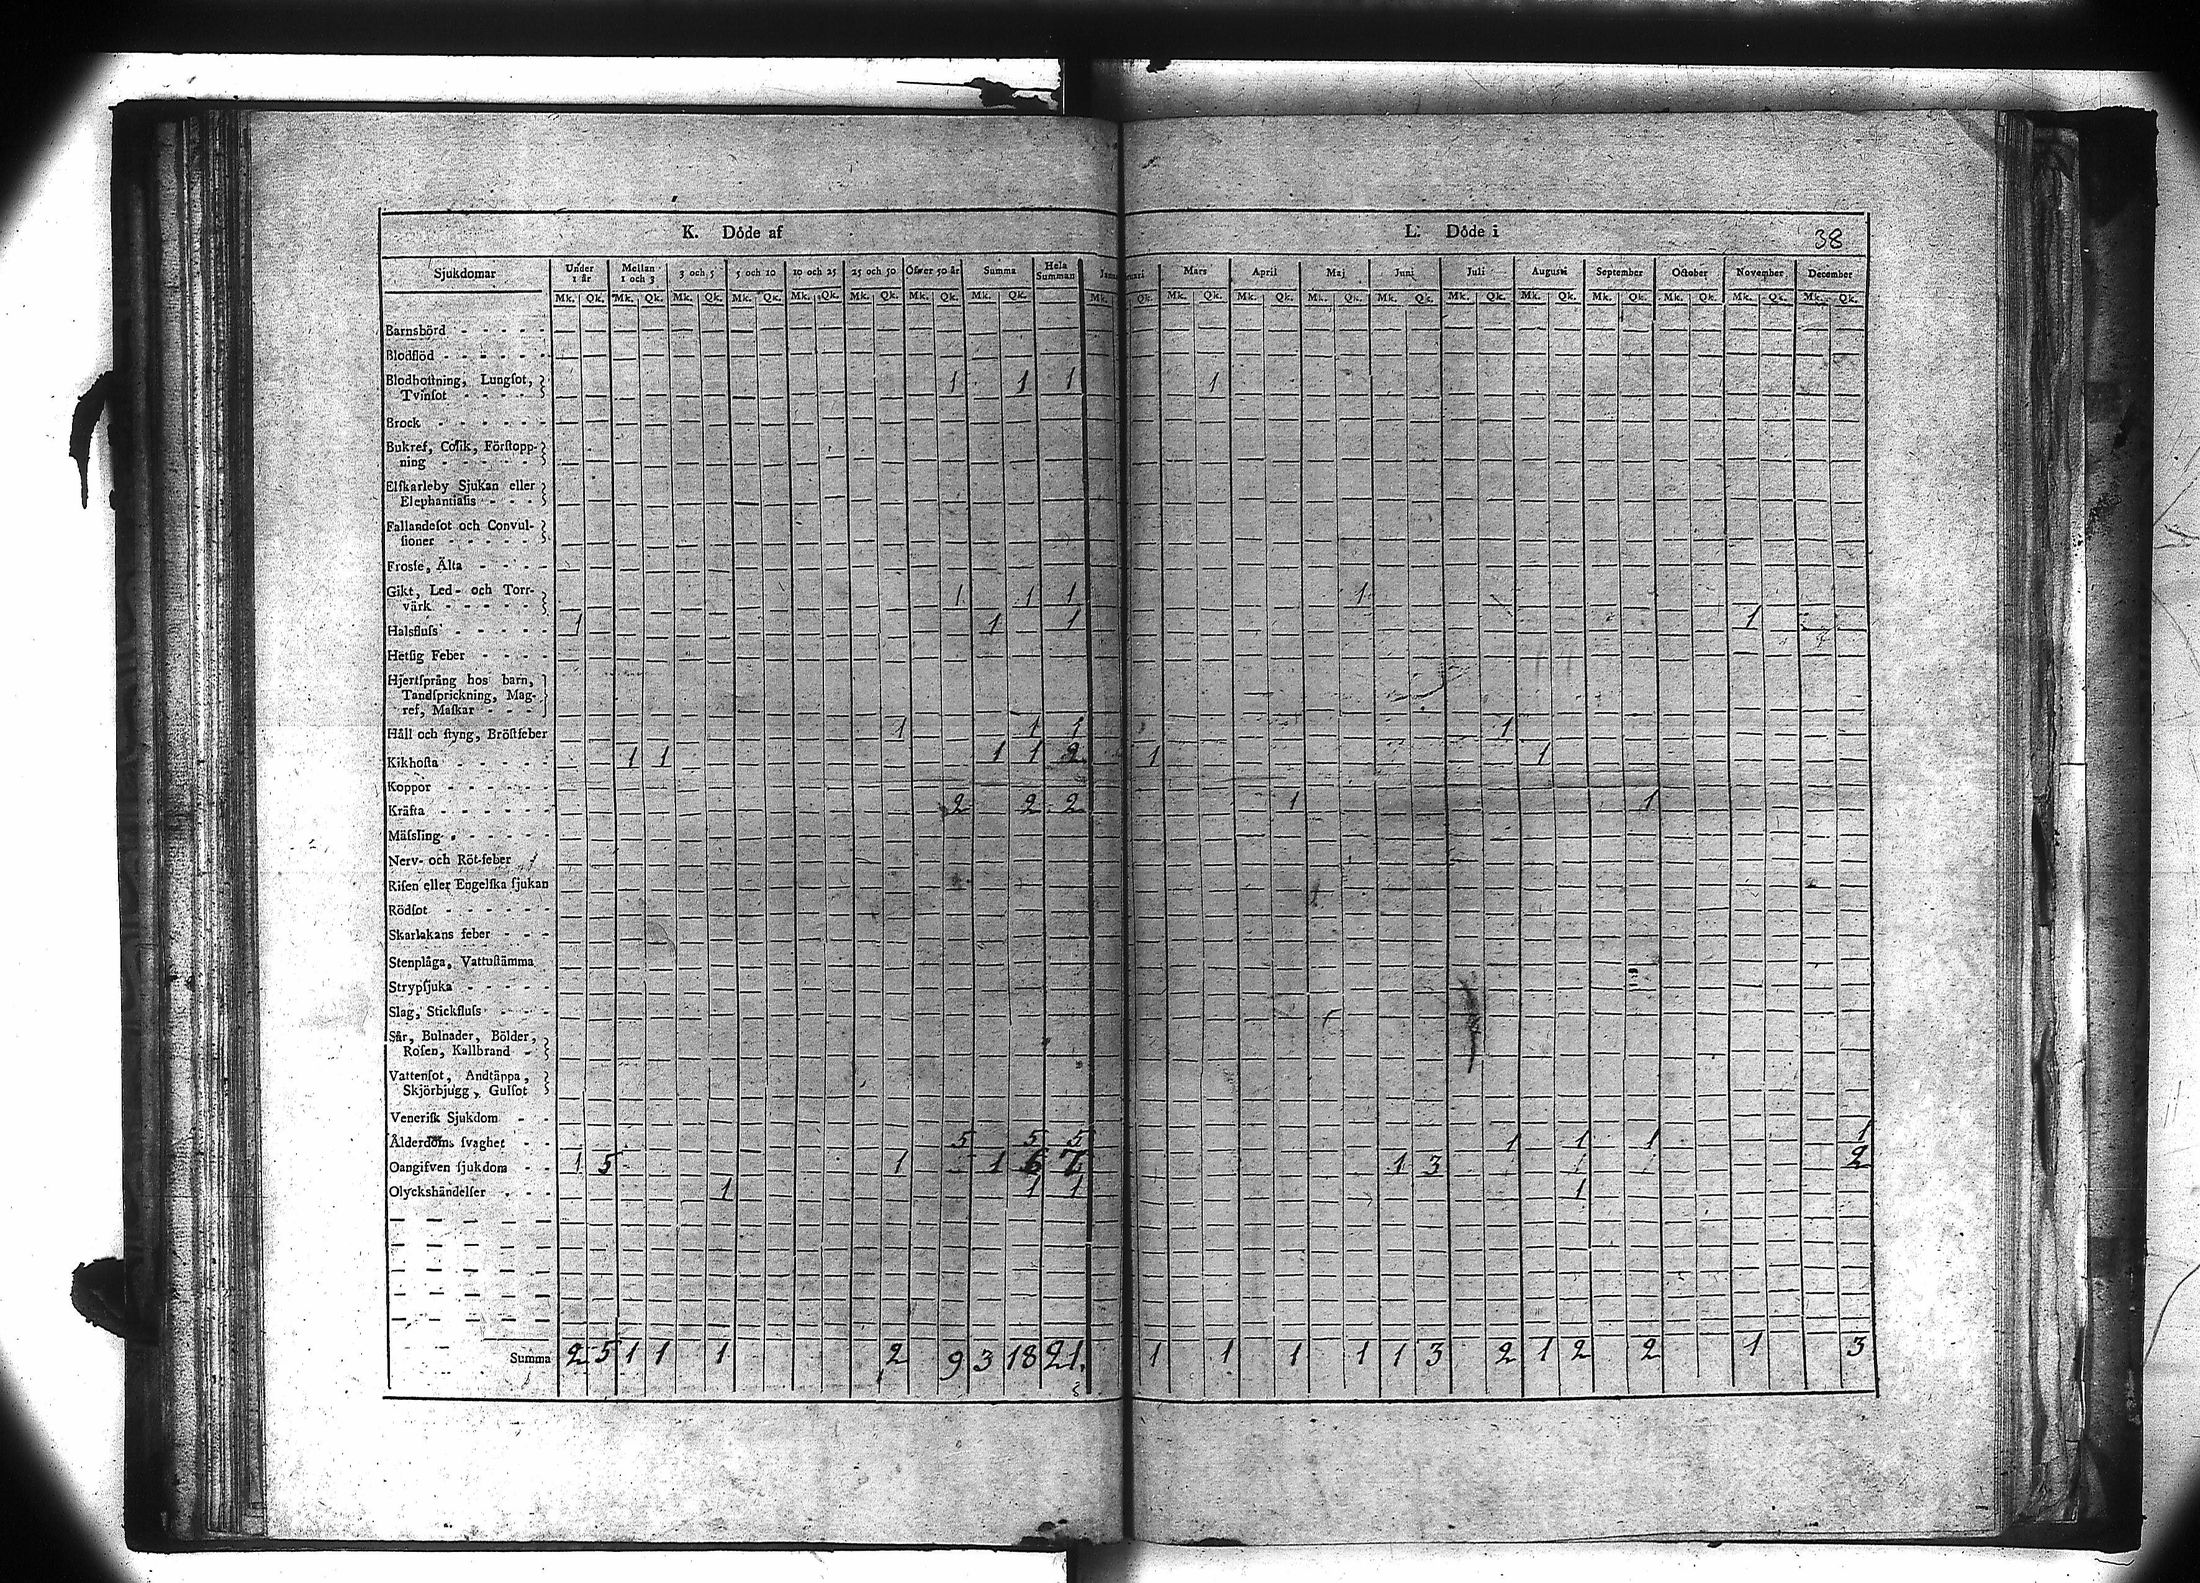 K. Döde af
L. Döde i
38
Sjukdomar Under 1 år Mellan 1 och 3 3 och 5 5 och 10 10 och 25 25 och 50 Öfwer 50 år Summa Hela Summan
Mars April Maj Juni Juli Augusti September October November December
Mk. Qk. Mk. Qk. Mk. Qk. Mk. Qk. Mk. Qk. Mk. Qk. Mk. Qk. Mk. Qk.
Mk. Qk. Mk. Qk. Mk. Qk. Mk. Qk. Mk. Qk. Mk. Qk. Mk. Qk. Mk. Qk. Mk. Qk. Mk. Qk. Mk. Qk.
Barnsbörd
Blodflöd
Blodhoſtning, Lungſot,
Tvinſot 1 1 1 1
Brock
Bukref, Colik, Förſtopp-
ning
Elſkarleby Sjukan eller
Elephantiaſis
Fallandeſot och Convul-
ſioner
Froſſe, Älta
Gikt, Led- och Torr-
värk 1 1 1 1
Halsfluſs 1 1 1 1
Hetſig Feber
Hjertſprång hos barn,
Tandſprickning, Mag-
ref, Maſkar
Håll och ſtyng, Bröſtfeber 1 1 1 1
Kikhoſta 1 1 1 1 2 1 1
Koppor
Kräfta 2 2 2 1 1
Mäſsling
Nerv- och Röt-feber
Riſen eller Engelſka ſjukan
Rödſot
Skarlakans feber
Stenplåga, Vattuſtämma
Strypſjuka
Slag, Stickfluſs
Sår, Bulnader, Bölder,
Roſen, Kallbrand
Vattenſot, Andtäppa,
Skjörbjugg, Gulſot
Veneriſk Sjukdom
Ålderdoms ſvaghet 5 5 5 1 1 1 1
Oangifven ſjukdom 1 5 1 1 6 7 1 3 2
Olyckshändelſer 1 1 1 1
Summa 2 5 1 1 1 2 9 3 18 21. 1 1 1 1 1 3 2 1 2 2 1 3